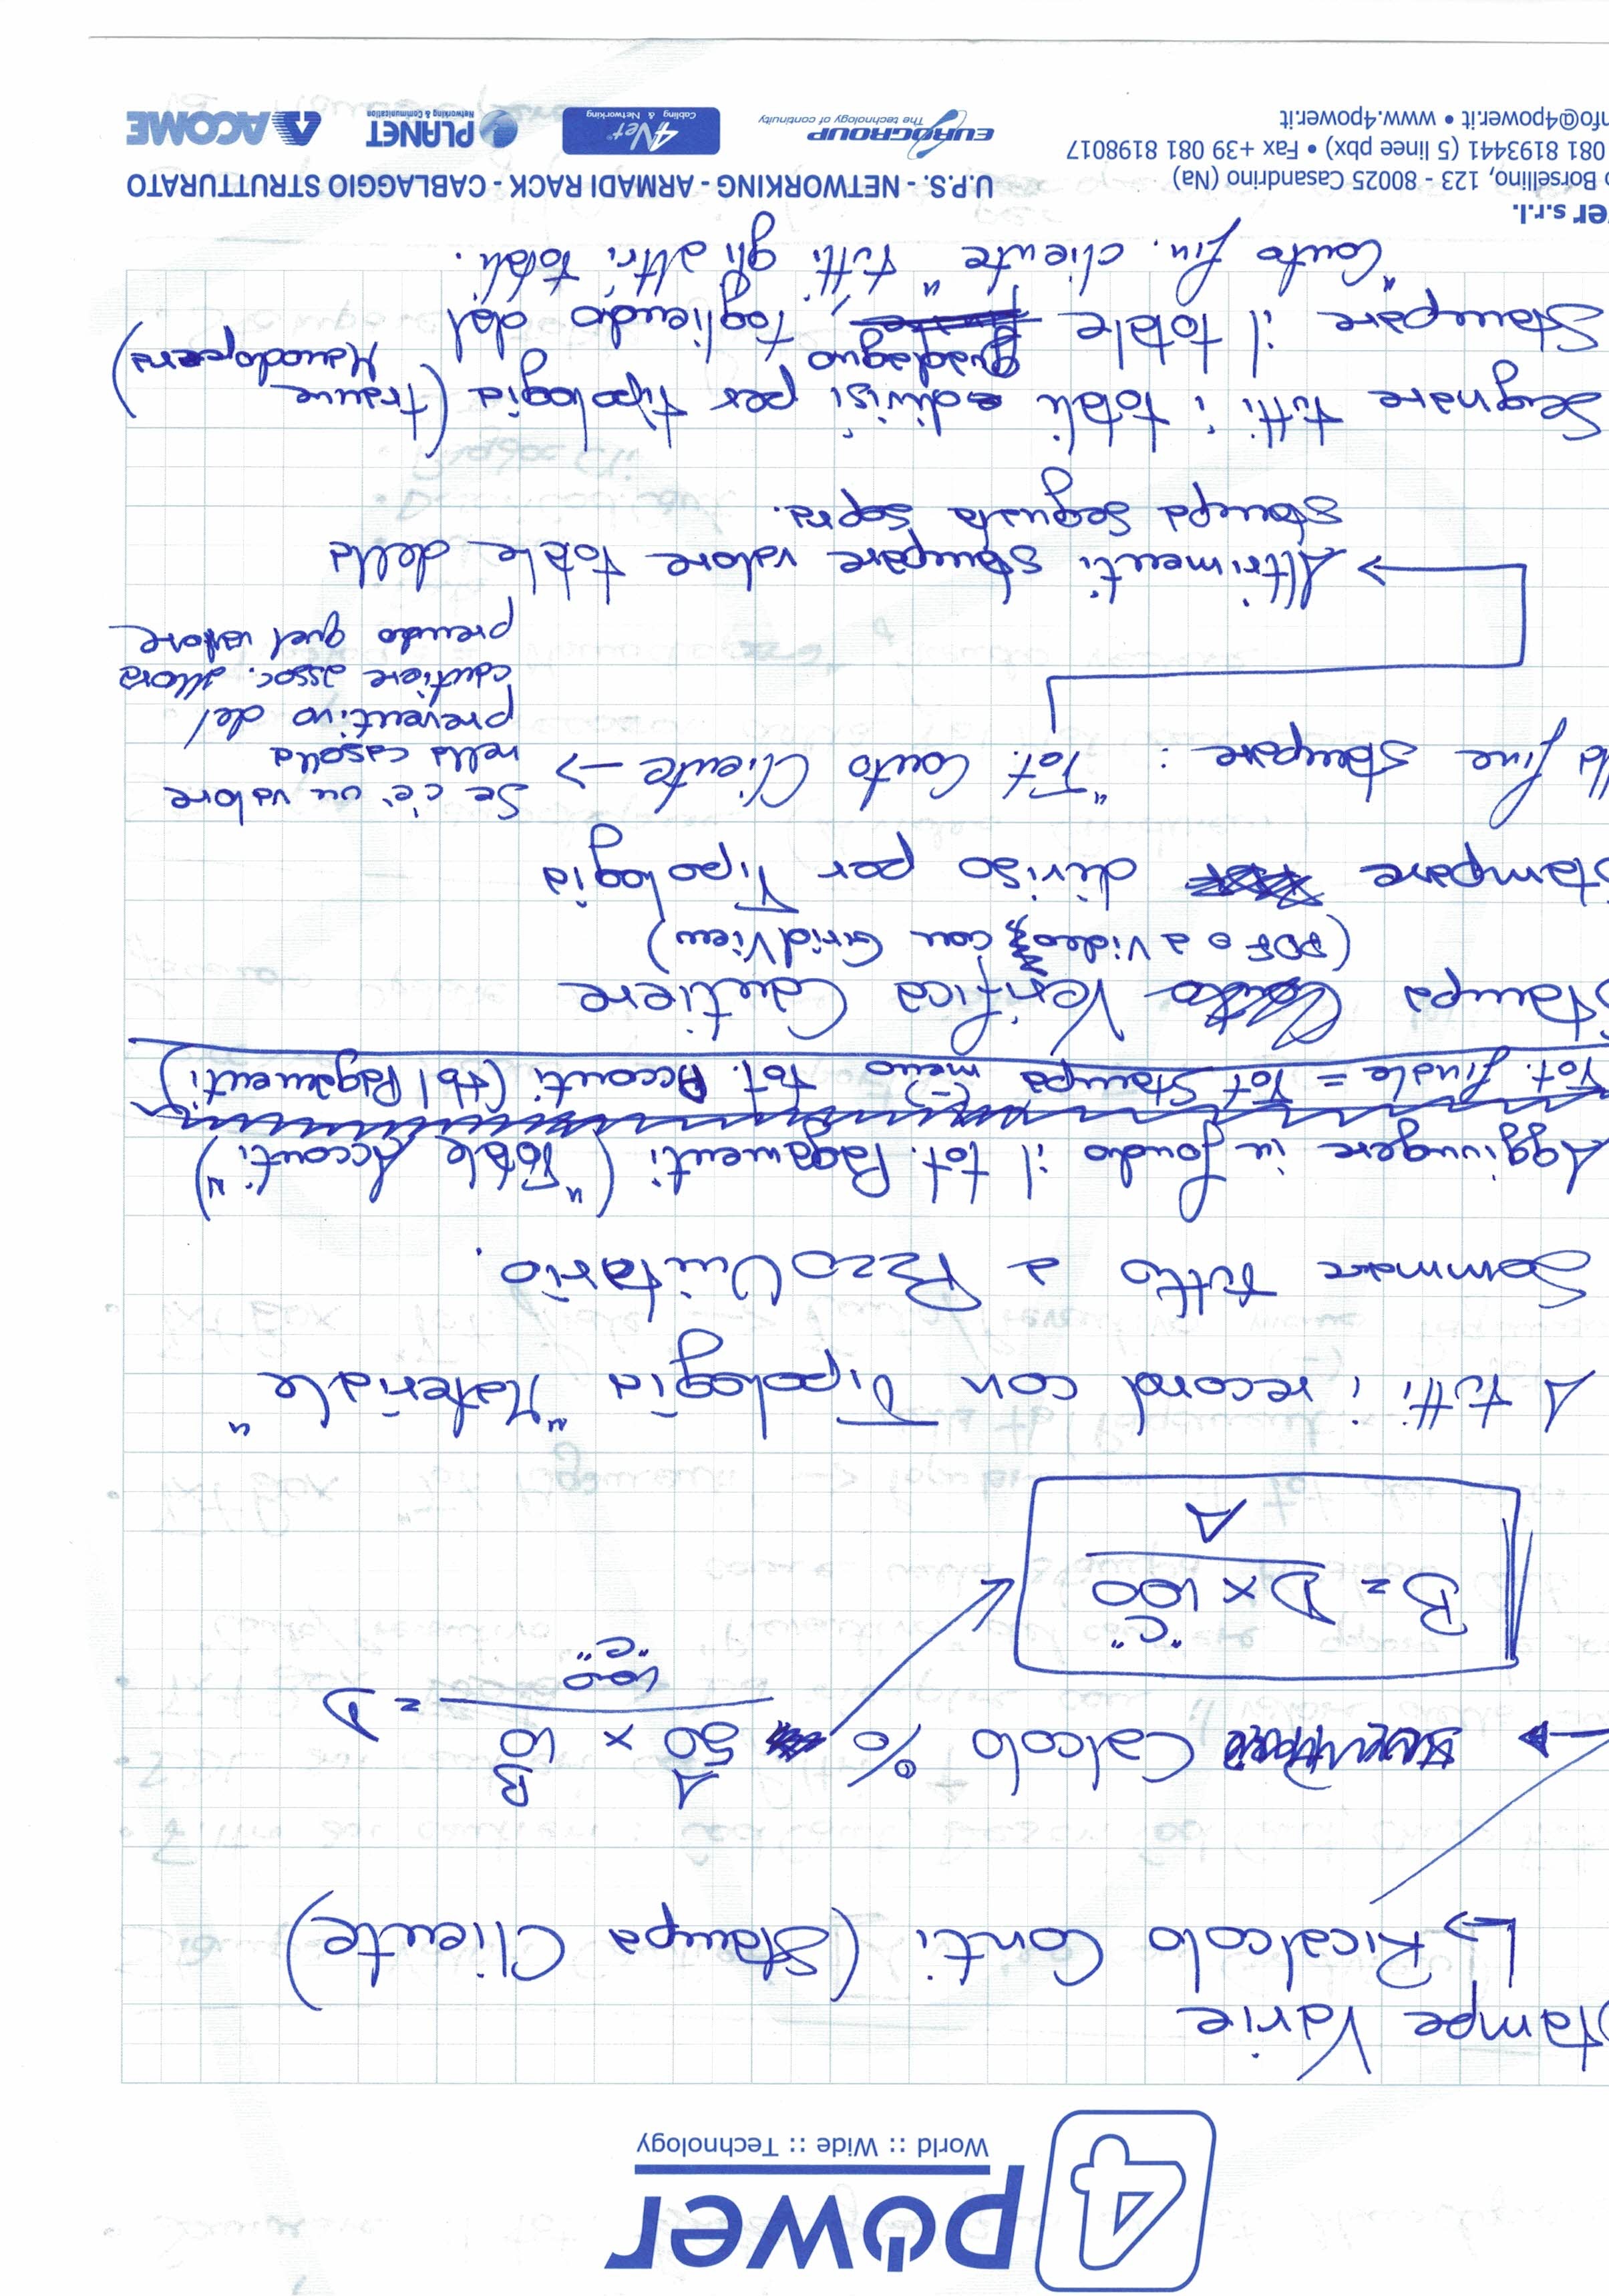 4 power
World :: Wide :: Technology
Stampe Varie
↳ Ricalcolo Conti (Stampa Cliente)
→ Calcolo %
A B
50 x 10 = D
100
"C"
"C"
B = D x 100
A
A tutti i record con Tipologia "Materiale"
Sommare tutto a PzzoUnitario.
Aggiungere in fondo il tot. Pagamenti ("Totale Acconti")
Tot. finale = Tot Stampa meno tot. Acconti (tbl Pagamenti)
Stampa Verifica Cantiere
(PDF o a Video con GridView)
Stampare diviso per Tipologia
lla fine stampare : "Tot. Conto Cliente →
Se c'è un valore
nella casella
preventivo del
cantiere assoc. allora
prendo quel valore
→ Altrimenti stampare valore totale della
stampa segnata sopra.
Segnare tutti i totali divisi per tipologia (tranne
Manodopera)
guadagno
Stampare il totale , togliendo dal
"Conto fin. cliente" tutti gli altri totali.
er s.r.l.
o Borsellino, 123 - 80025 Casandrino (Na)
081 8193441 (5 linee pbx) • Fax +39 081 8198017
nfo@4power.it • www.4power.it
U.P.S. - NETWORKING - ARMADI RACK - CABLAGGIO STRUTTURATO
EUROGROUP
The technology of continuity
4Net
Cabling & Networking
PLANET
Networking & Communication
ACOME